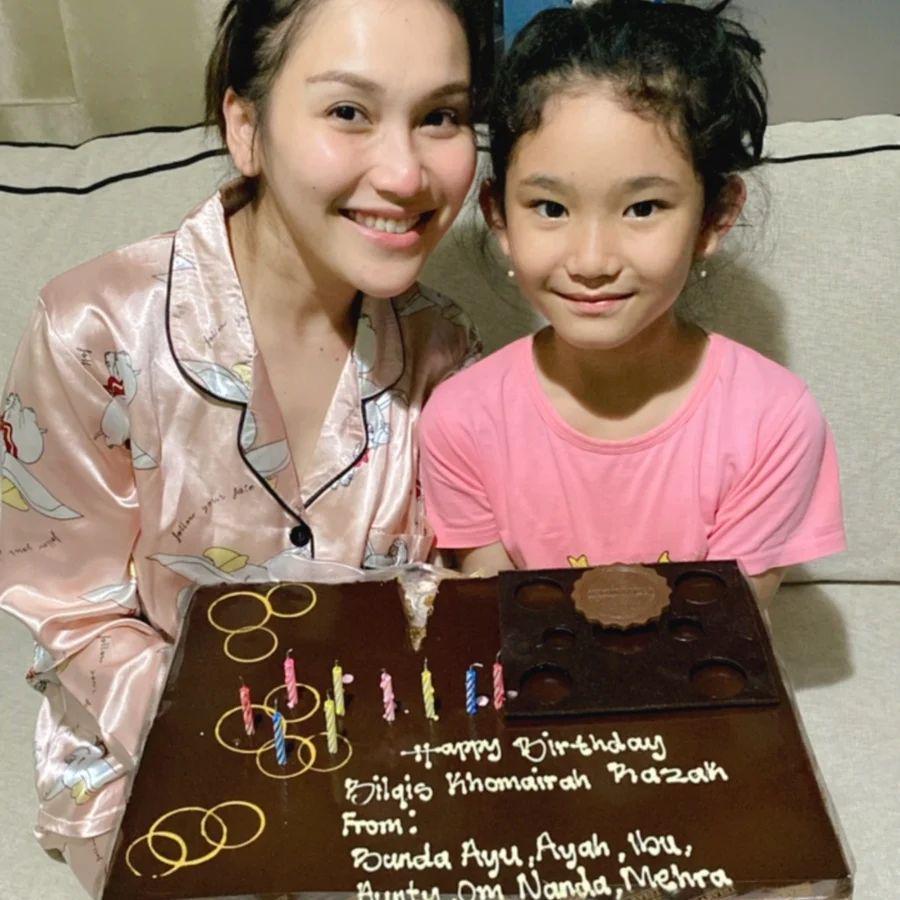 follow your hair
Happy Birthday
Bilqis Khomairah Razak
From:
Bunda Ayu, Ayah, Ibu,
Aunty, Om Nanda, Mehra